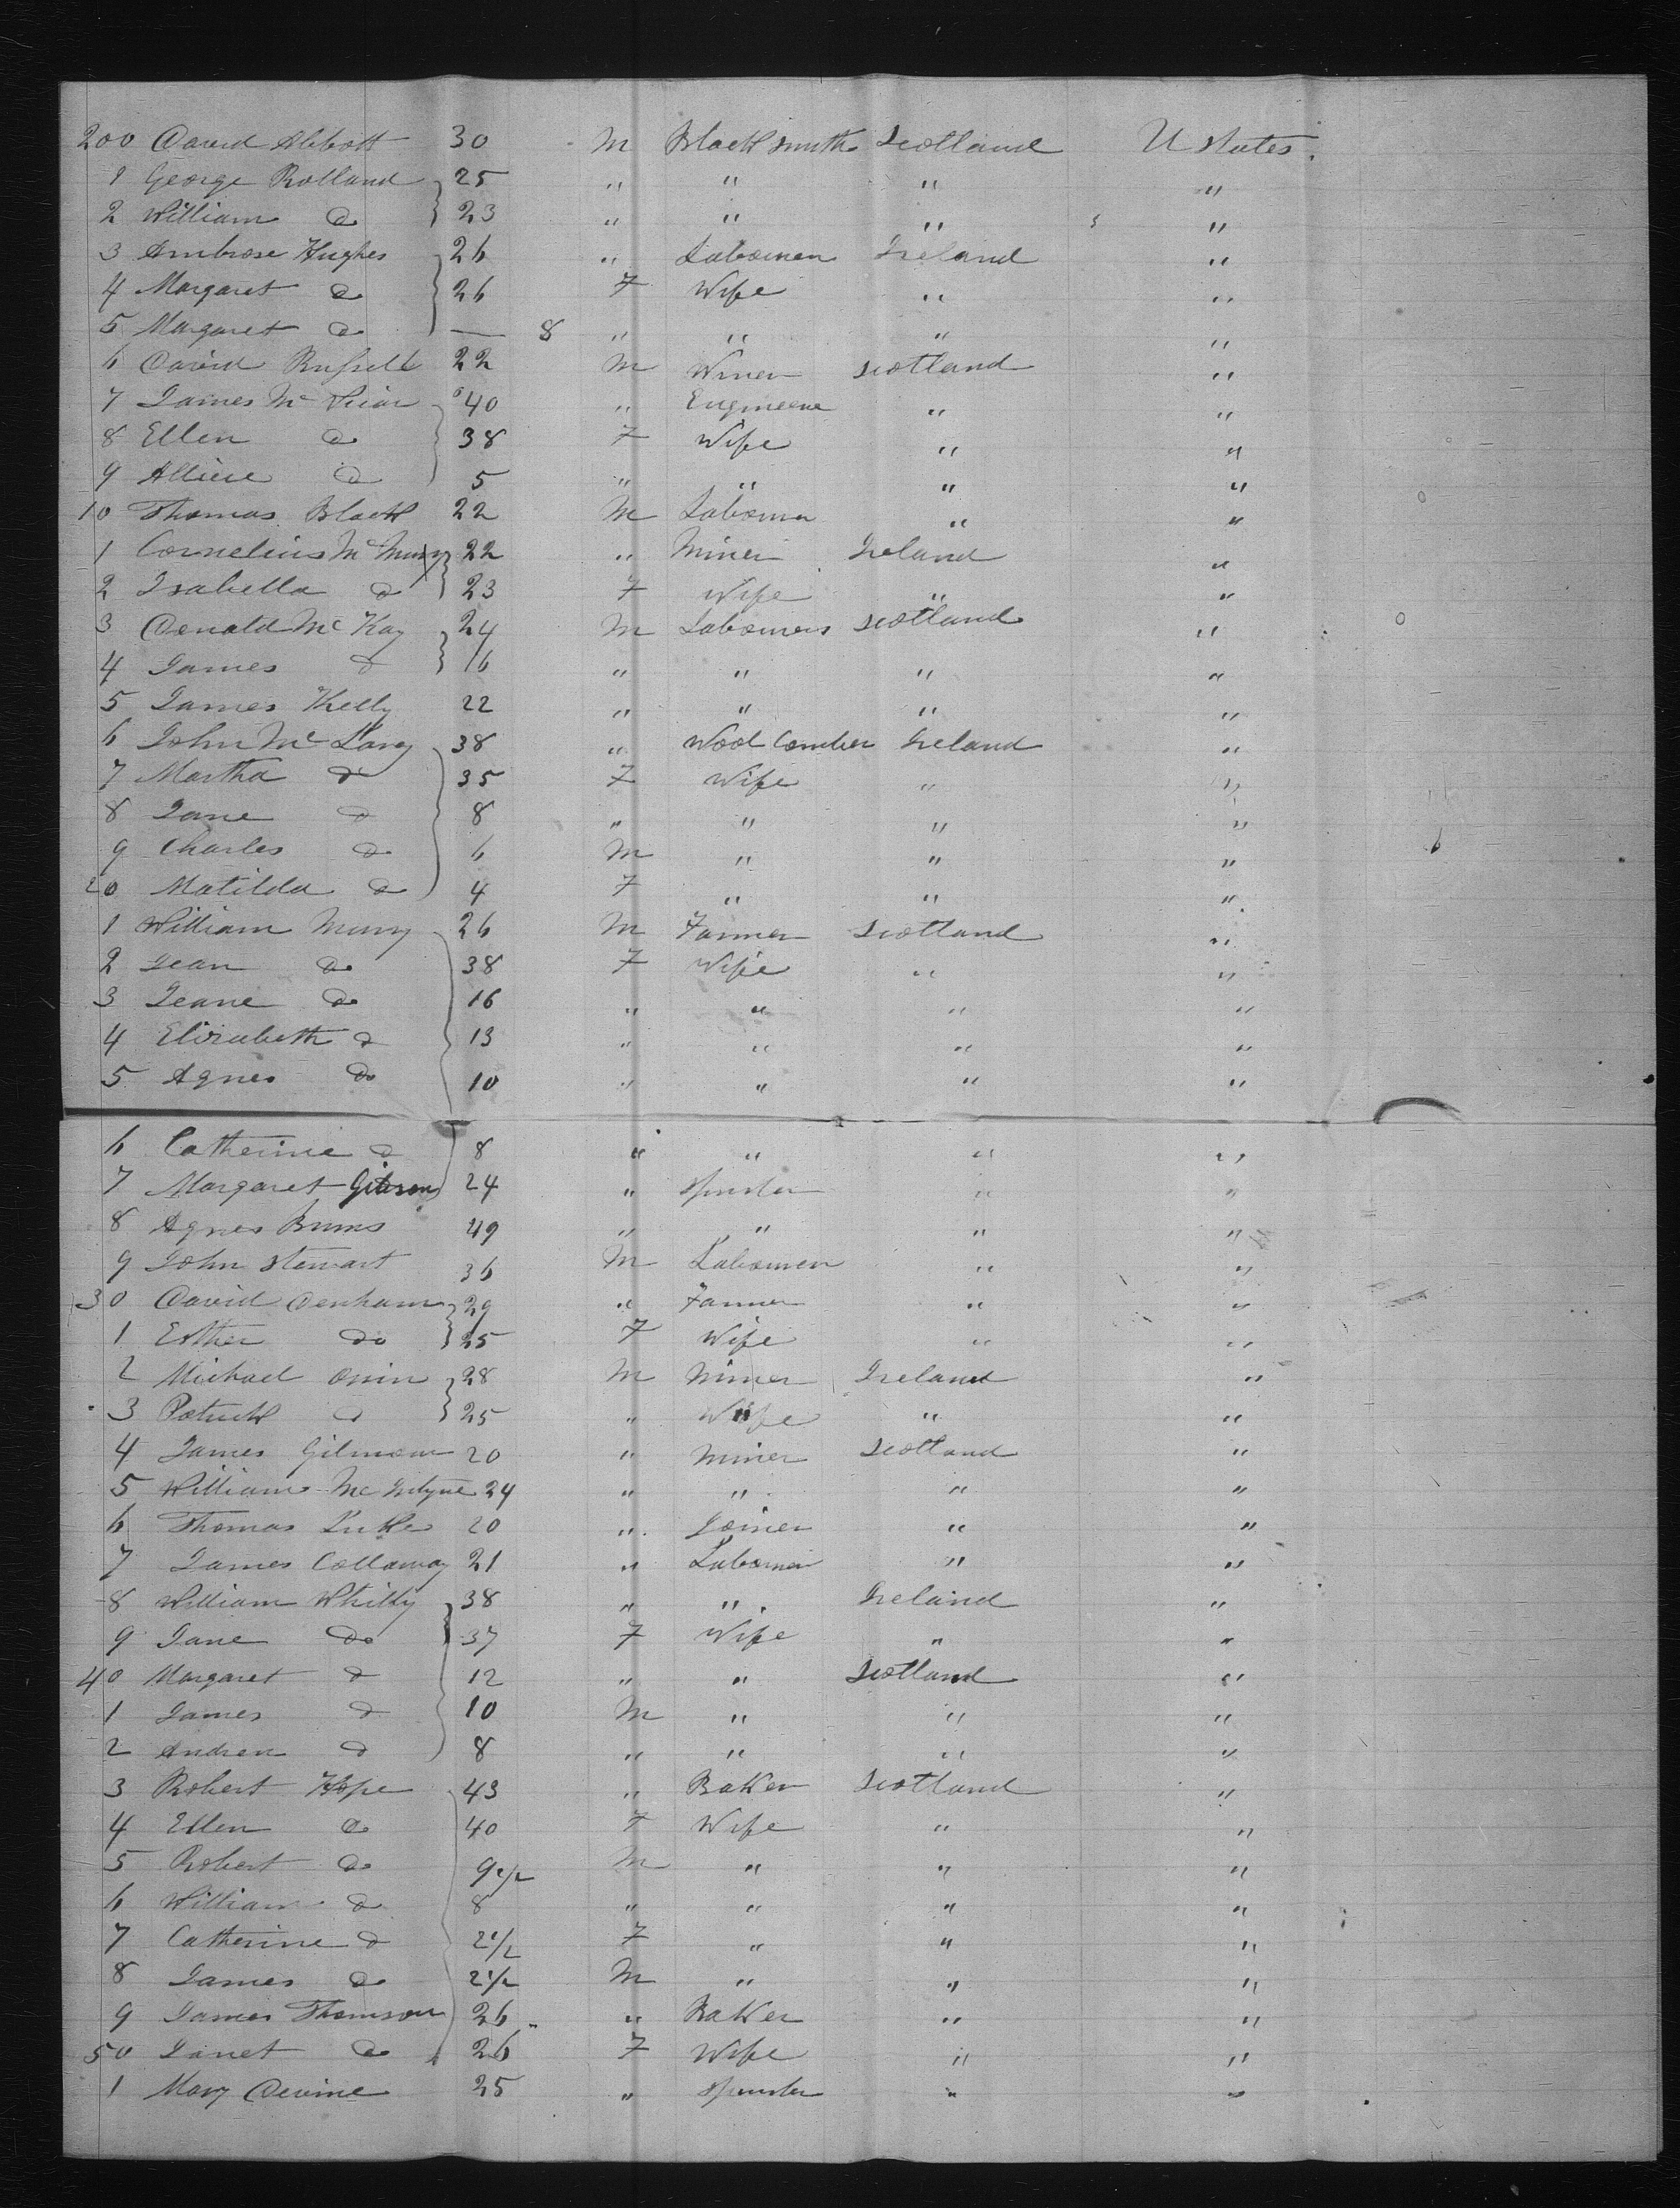 200 David Abbott 30 M Blacksmith Scotland U States.
1 George Rolland 25 " " " "
2 William Do 23 " " " "
3 Ambrose Hughes 26 " Labourer Ireland "
4 Margaret Do 26 F Wife " "
5 Margaret Do — 8 " " " "
6 David Russell 22 M Miner Scotland "
7 James Mc 40 " Engineer " "
8 Ellen Do 38 F Wife " "
9 Do 5 " " " "
10 Thomas Black 22 M Labourer " "
1 Cornelius Mc 22 " Miner Ireland "
2 Isabella Do 23 F Wife " "
3 Donald Mc Kay 24 M Labourers Scotland "
4 James Do 16 " " " "
5 James Kelly 22 " " " "
6 John Mc 38 " Wool Comber Ireland "
7 Martha Do 35 F Wife " "
8 Jane Do 8 " " " "
9 Charles Do 6 M " " "
20 Matilda Do 4 F " " "
1 William Murry 26 M Farmer Scotland "
2 Jean Do 38 F Wife " "
3 Jeane Do 16 " " " "
4 Elizabeth Do 13 " " " "
5 Agnes Do 10 " " " "
6 Catherine Do 8 " " " "
7 Margaret Gibson 24 " Spinster " "
8 Agnes Burns 49 " " " "
9 John Stewart 36 M Labourer " "
30 David Denham 29 " Farmer " "
1 Esther Do 25 F Wife " "
2 Michael 28 M Miner Ireland "
3 Patrick Do 25 " Wife " "
4 James Gilmour 20 " Miner Scotland "
5 William Mc Intyre 24 " " " "
6 Thomas Luke 20 " Joiner " "
7 James Collaway 21 " Labourer " "
8 William Whitty 38 " " Ireland "
9 Jane Do 37 F Wife " "
40 Margaret Do 12 " " Scotland "
1 James Do 10 M " " "
2 Andrew Do 8 " " " "
3 Robert Hope 43 " Baker Scotland "
4 Ellen Do 40 F Wife " "
5 Robert Do 9 1/2 M " " "
6 William Do 8 " " " "
7 Catherine Do 2 1/2 F " " "
8 James Do 2 1/2 M " " "
9 James Thomson 26 " Baker " "
50 Janet Do 26 F Wife " "
1 Mary Devine 25 " Spinster " "